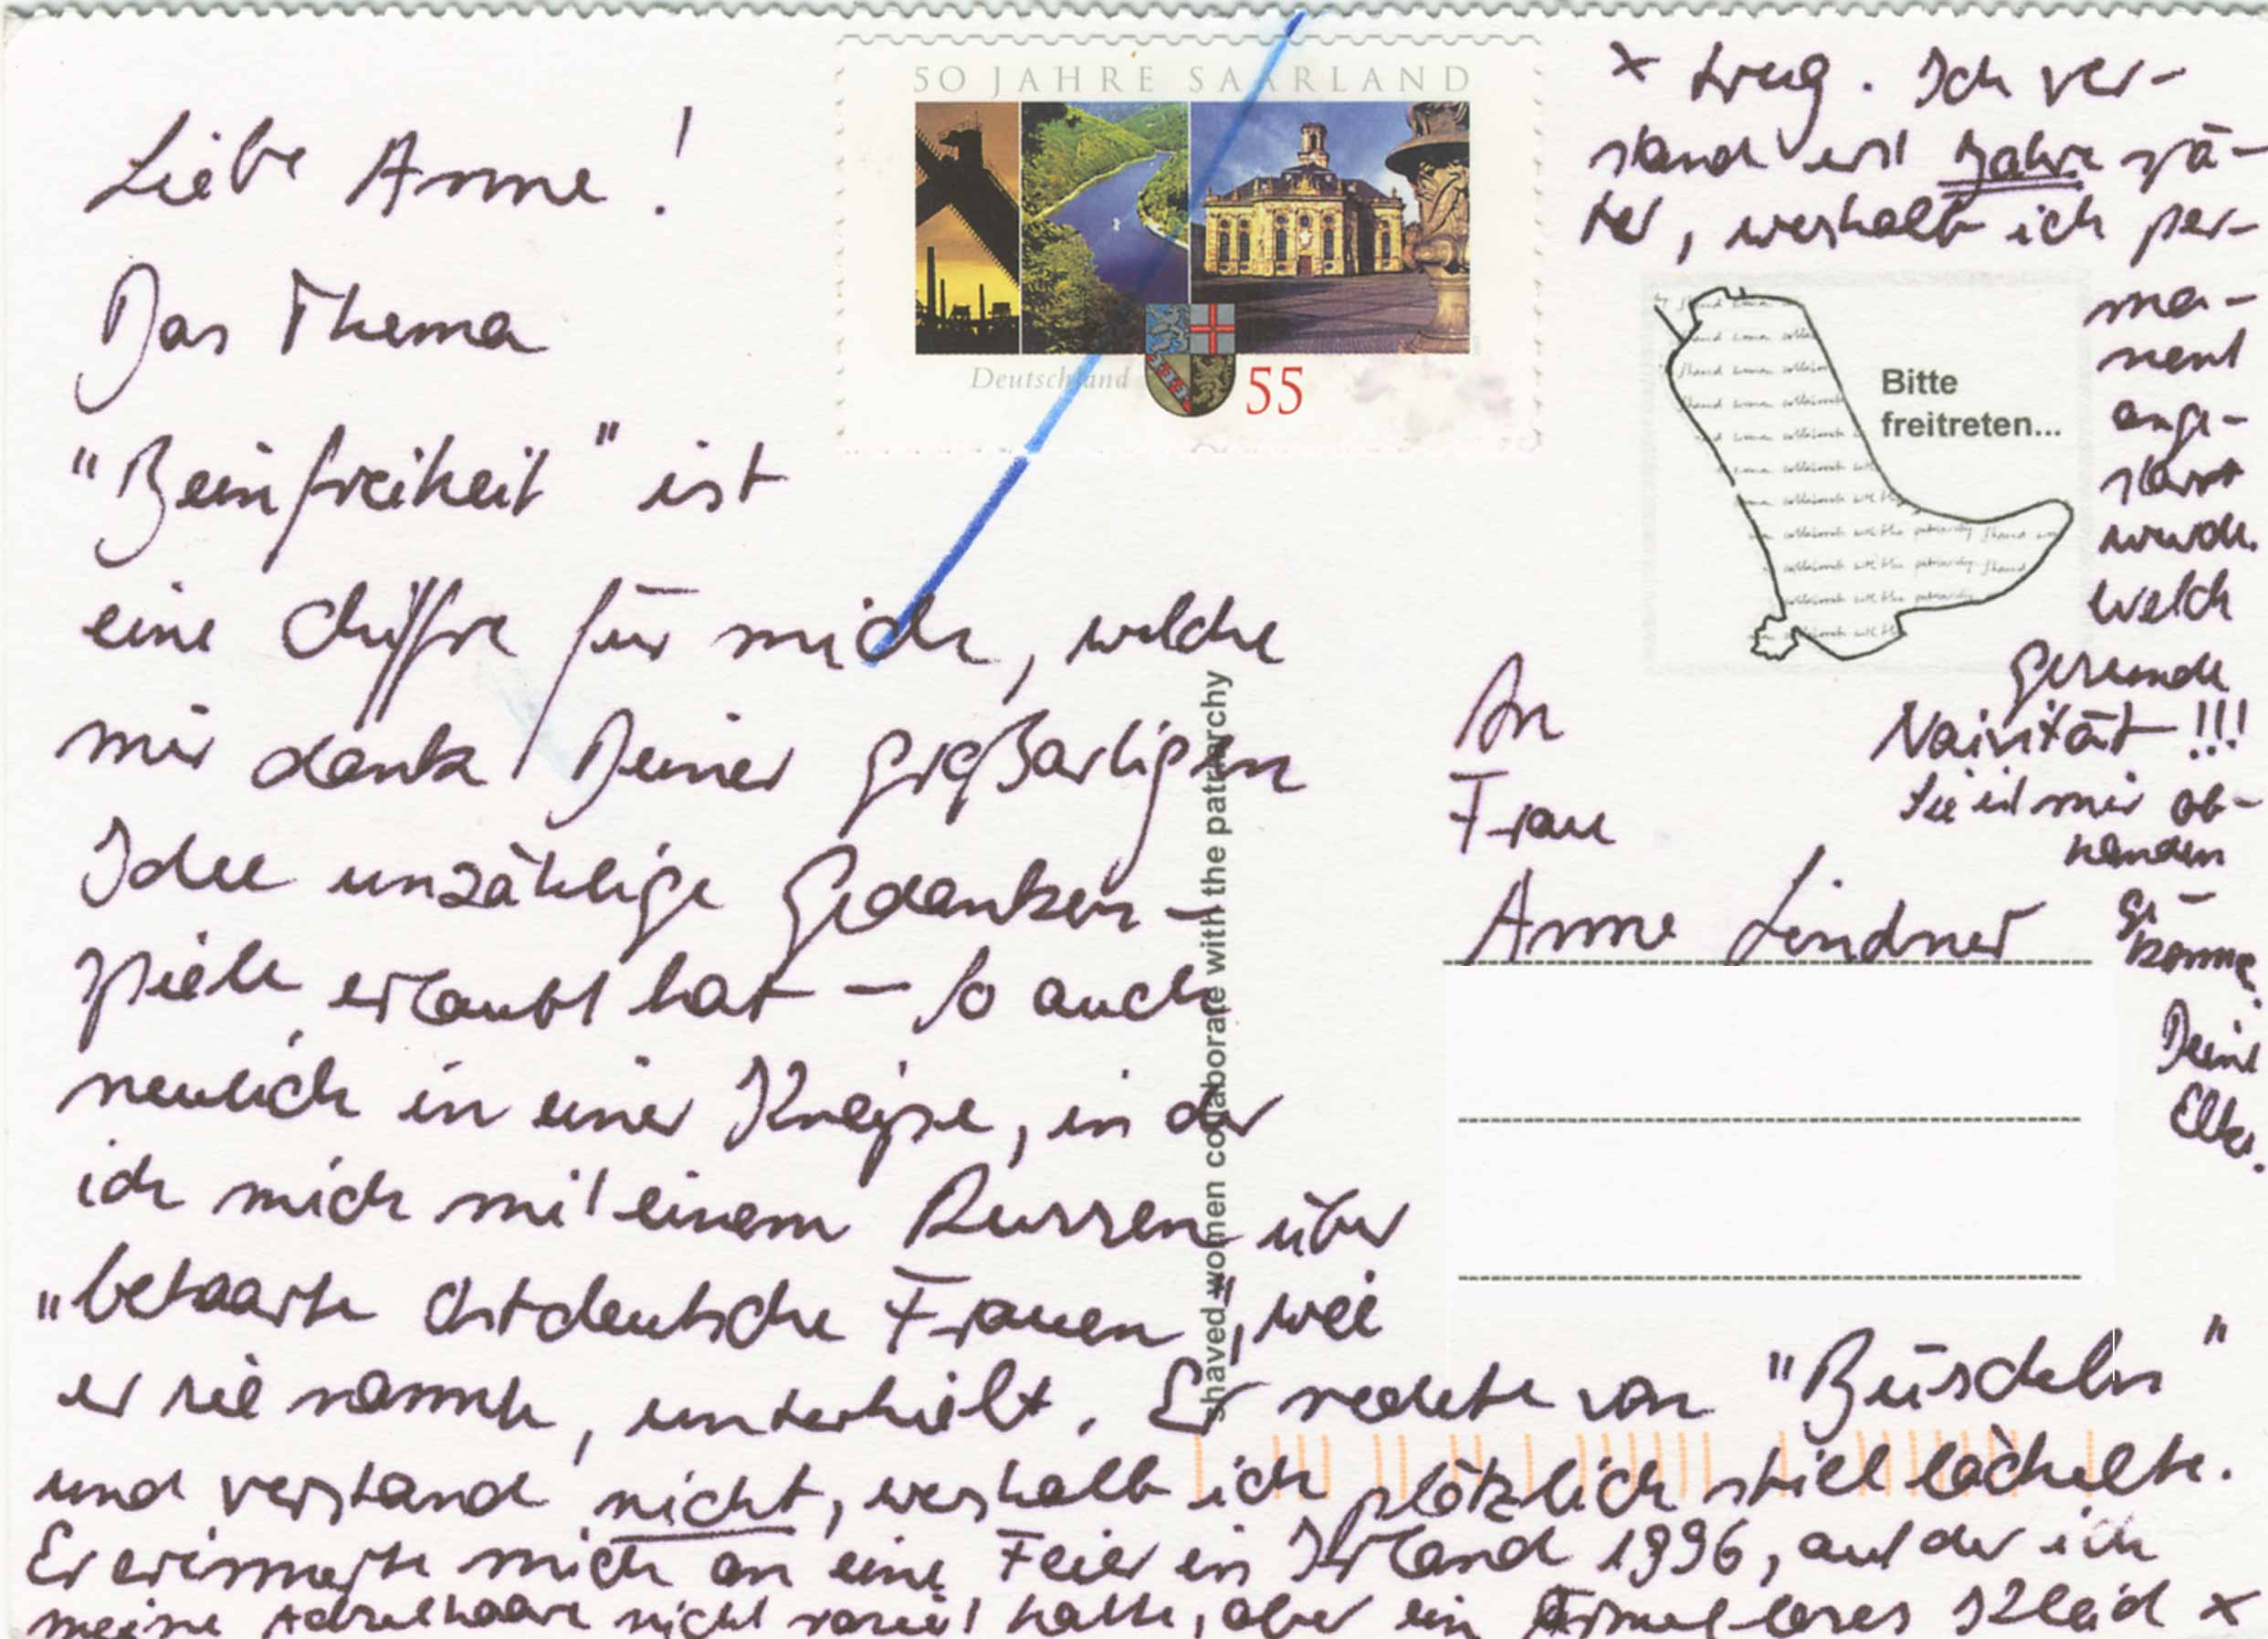 Liebe Anne!
Das Thema
"Beinfreiheit" ist
eine Chiffre für mich, welche
mir dank Deiner großartigen
Idee unzählige Gedanken-
spiele erlaubt hat – so auch
neulich in einer Kneipe, in der
ich mich mit einem Russen über
"behaarte ostdeutsche Frauen", wie
er sie nannte, unterhielt. Er redete von "Büscheln"
und verstand nicht, weshalb ich plötzlich still lächelte.
Er erinnerte mich an eine Feier in Irland 1996, auf der ich
meine Achselhaare nicht rasiert hatte, aber ein Ärmelloses Kleid x
x trug. Ich ver-
stand erst Jahre spä-
ter, weshalb ich per-
ma-
nent
ange-
starrt
wurde.
Welch
gesunde
Naivität!!!
Sie ist mir ab-
handen
ge-
komme.
Deine
Elke.
50 JAHRE SAARLAND
Deutschland 55
Bitte
freitreten...
shaved women collaborate with the patriarchy
An
Frau
Anne Lindner